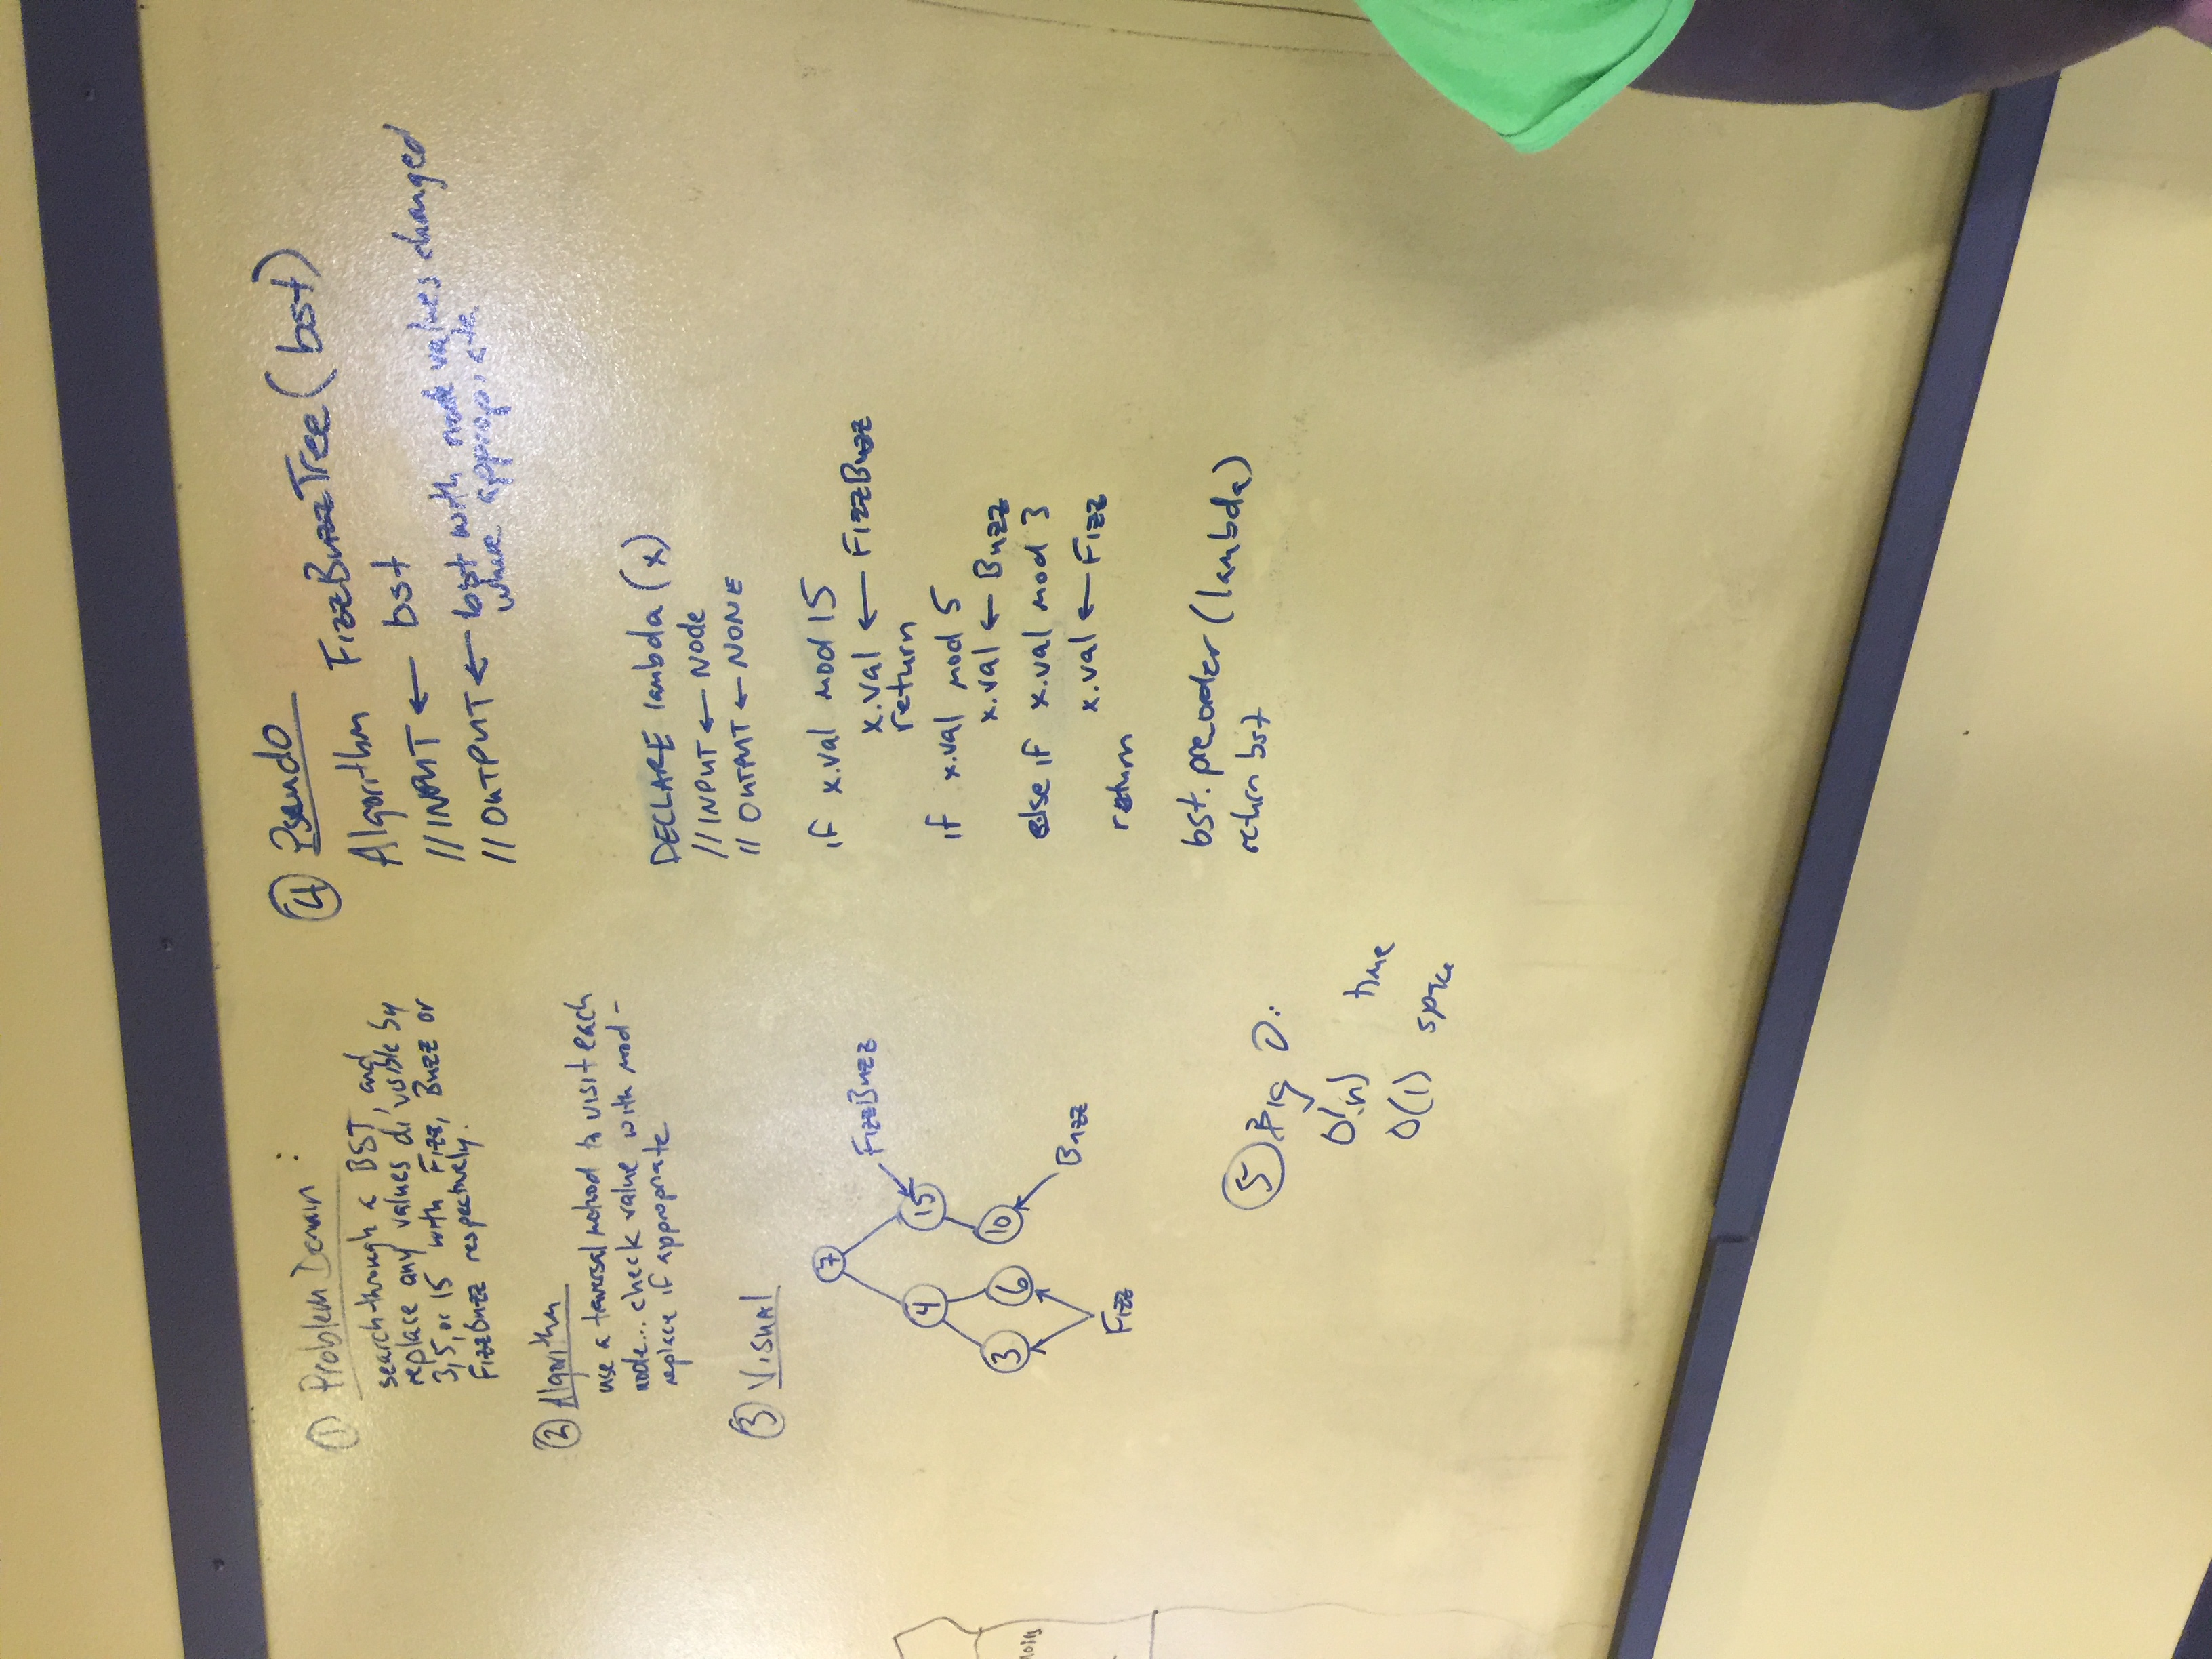 ① Problem Domain :
search through a BST, and
replace any values divisible by
3, 5, or 15 with Fizz, Buzz or
FizzBuzz respectively.
② Algorithm
use a traversal method to visit each
node... check value with mod -
replace if appropriate
③ Visual
7
FizzBuzz
4 15
3 6 10
Buzz
Fizz
⑤ Big O:
O(n) time
O(1) space
④ Pseudo
Algorithm FizzBuzzTree(bst)
// INPUT ← bst
// OUTPUT ← bst with node values changed
where appropriate
DECLARE lambda (x)
// INPUT ← Node
// OUTPUT ← NONE
if x.val mod 15
x.val ← FizzBuzz
return
if x.val mod 5
x.val ← Buzz
else if x.val mod 3
x.val ← Fizz
return
bst.preorder(lambda)
return bst